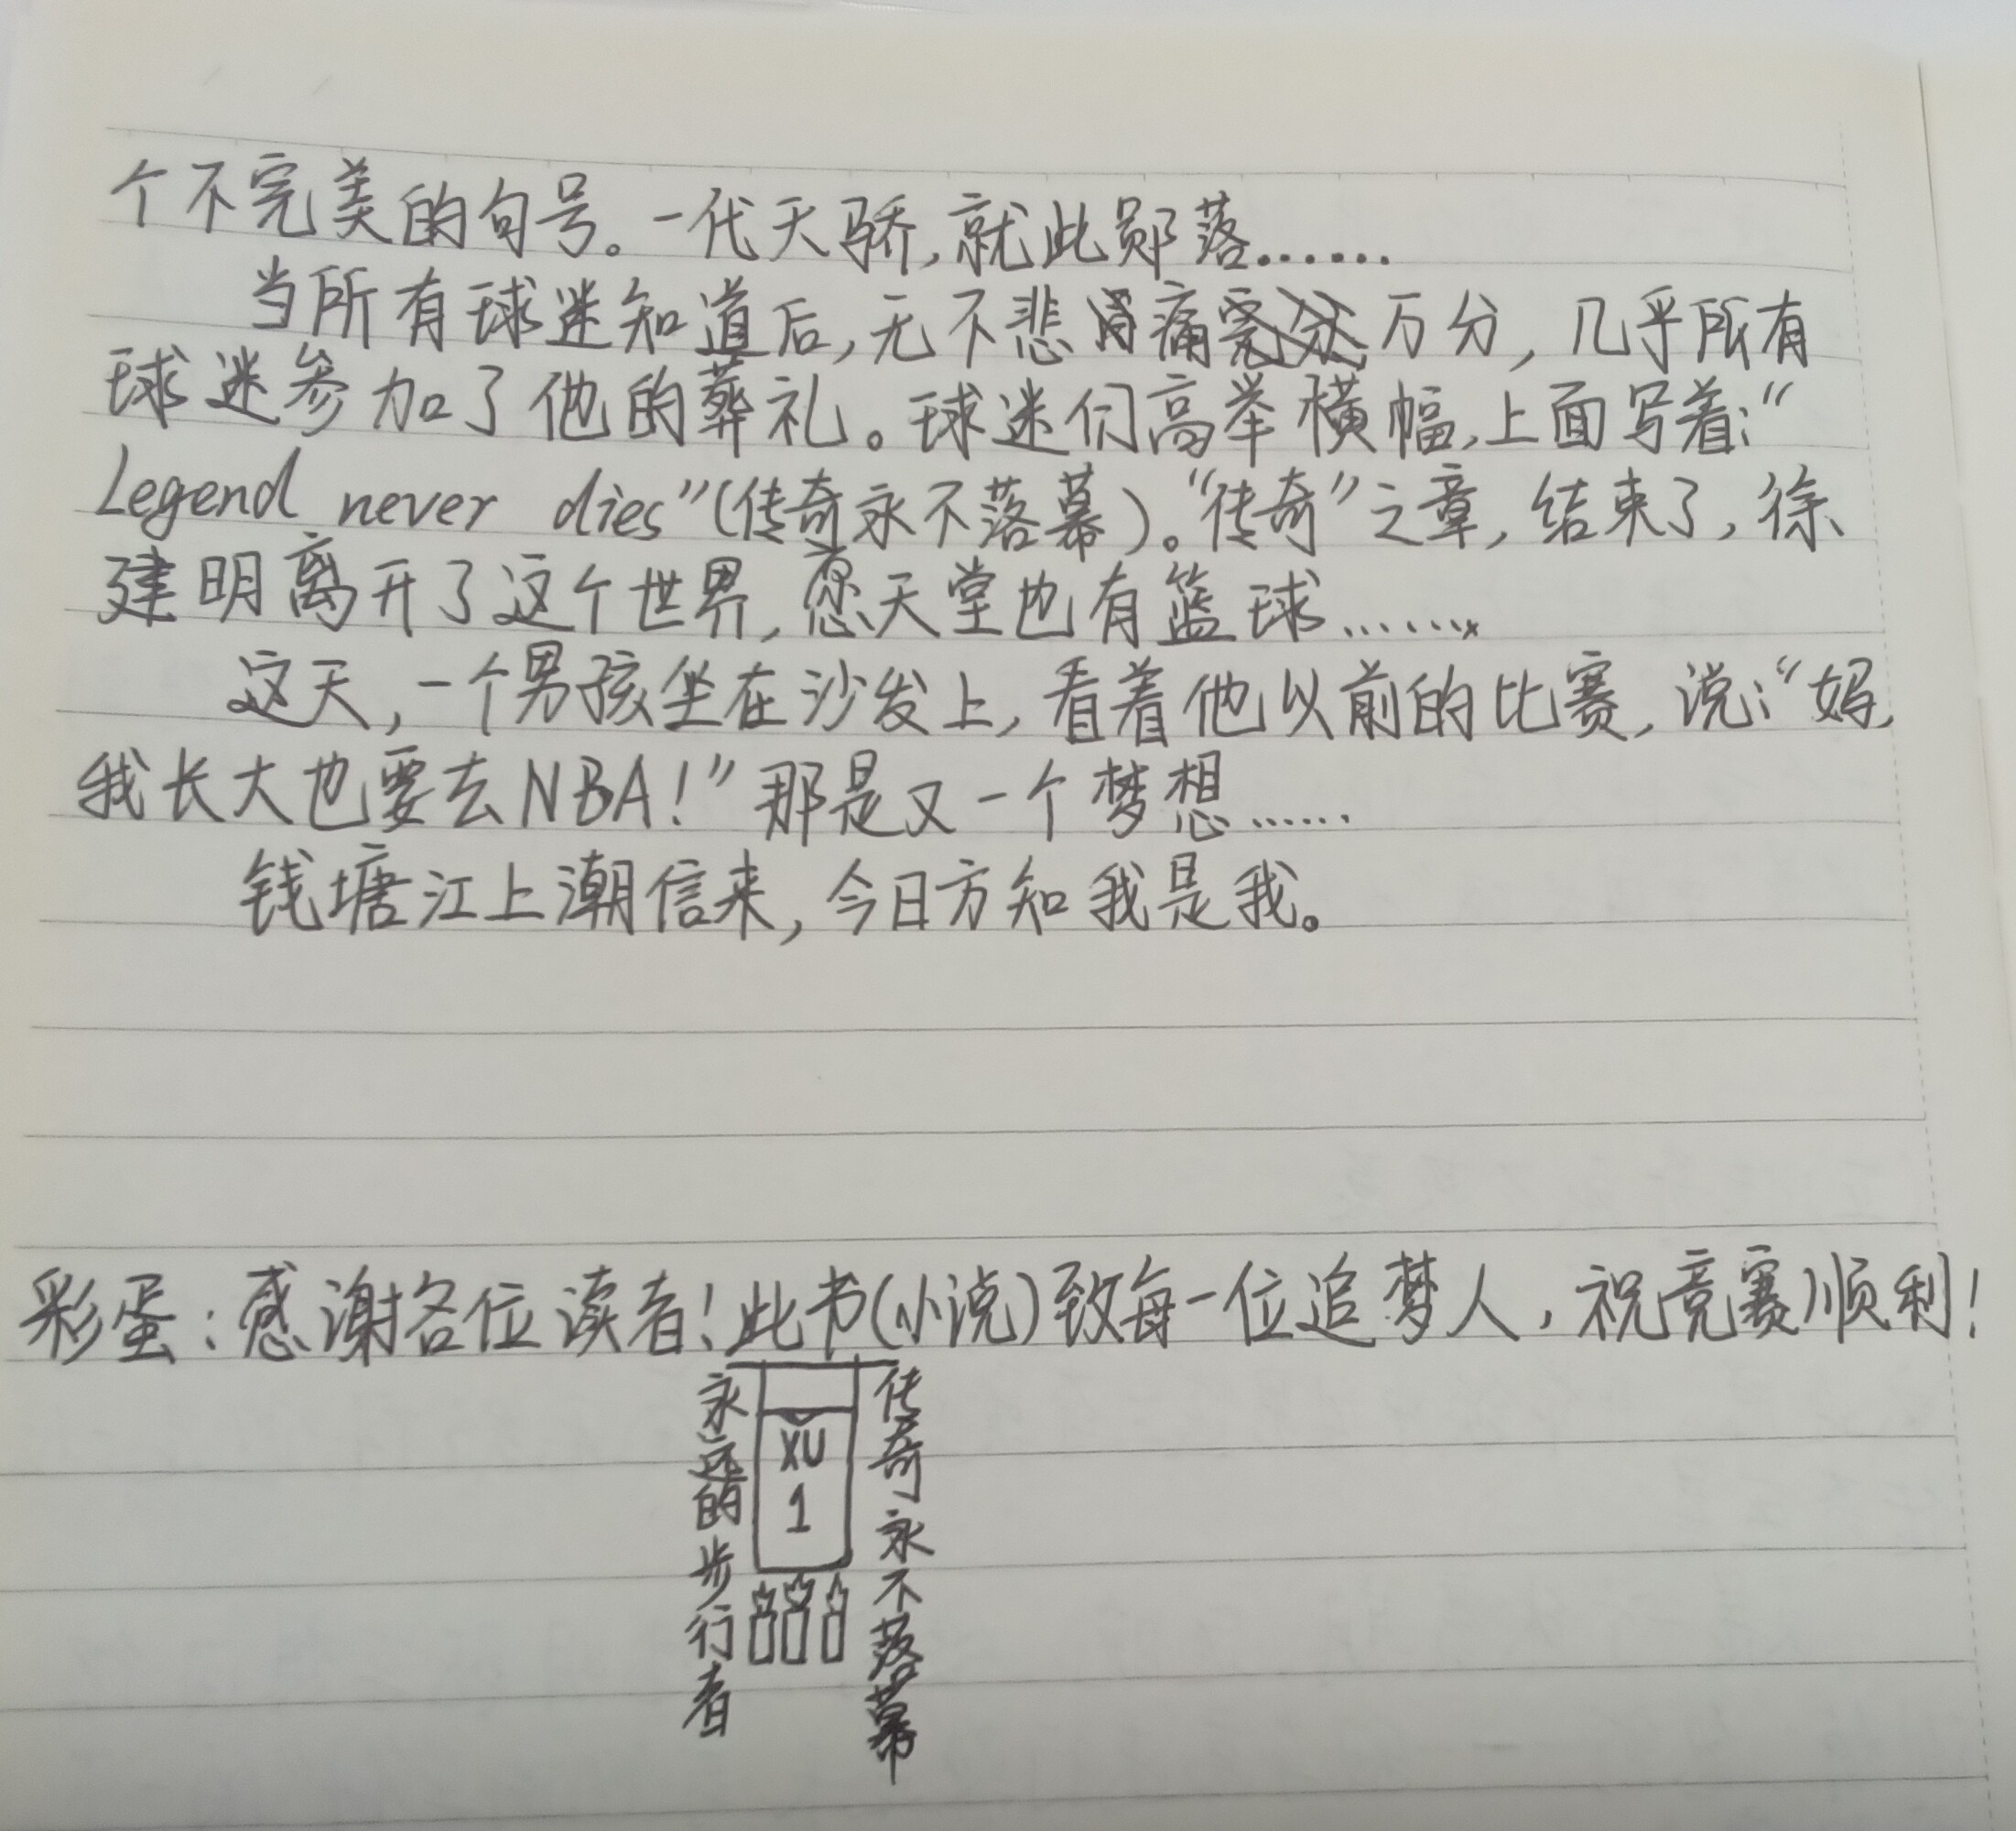 个不完美的句号。一代天骄,就此郧落……
当所有球迷知道后,无不悲痛万分,几乎所有
球迷参加了他的葬礼。球迷们高举横幅,上面写着:“
Legend never dies”(传奇永不落幕)。“传奇”之章,结束了,徐
建明离开了这个世界,愿天堂也有篮球……
这天,一个男孩坐在沙发上,看着他以前的比赛,说:“妈,
我长大也要去NBA!”那是又一个梦想……
钱塘江上潮信来,今日方知我是我。
彩蛋:感谢各位读者!此书(小说)致每一位追梦人,祝竞赛顺利!
永远的步行者
XU
1
传奇永不落幕